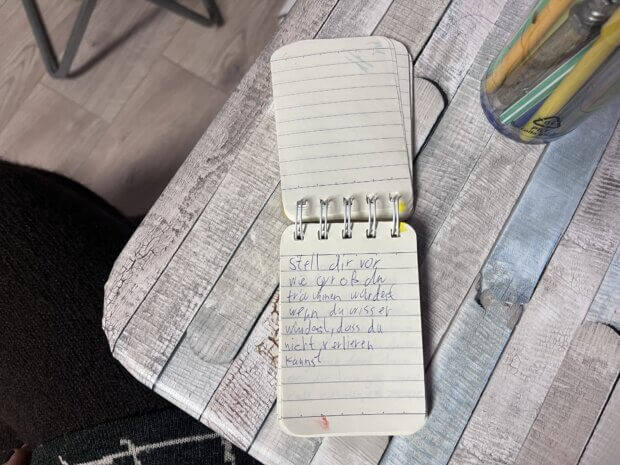 Stell dir vor
wie groß du
träumen würdest
wenn du wissen
würdest, dass du
nicht verlieren
kannst